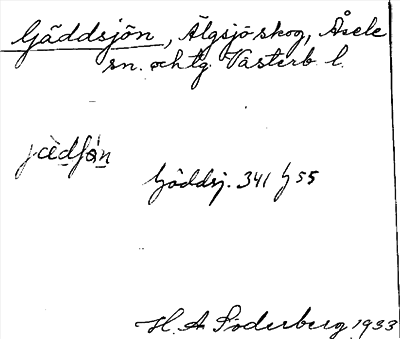 Gäddsjön, Älgsjö skog, Åsele
sn. och tg. Västerb. l.
Gäddsj. 341 55
H. A. Söderberg 1933